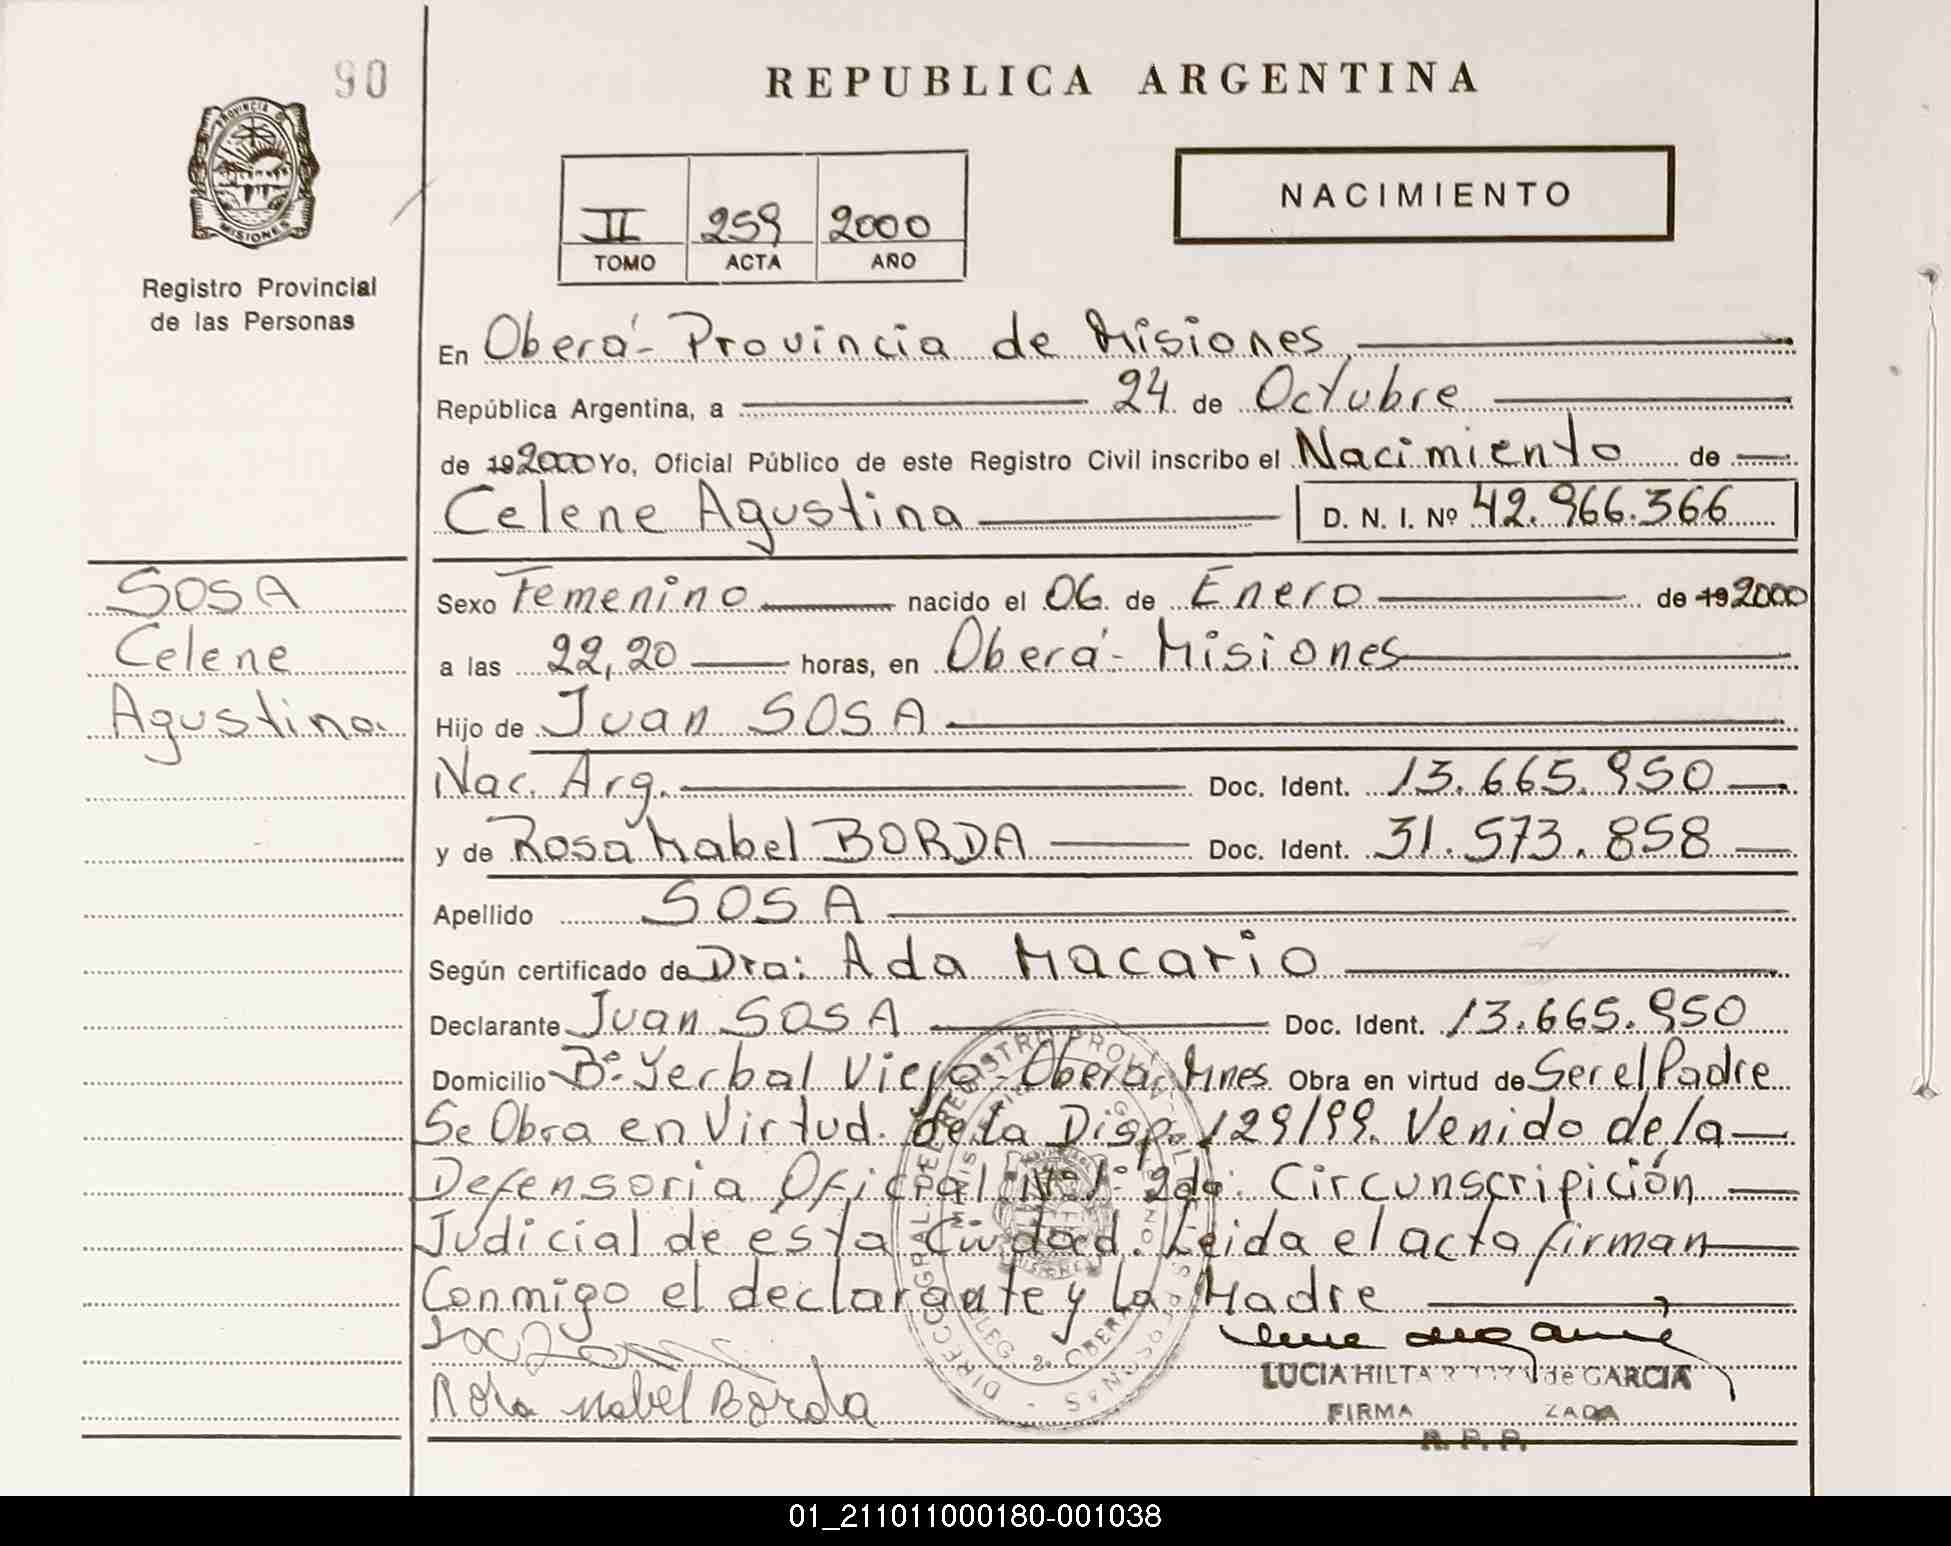 90
REPUBLICA ARGENTINA
PROVINCIA DE
MISIONES
Registro Provincial
de las Personas
II 259 2000
TOMO ACTA AÑO
NACIMIENTO
En Oberá - Provincia de Misiones
República Argentina, a 24 de Octubre
de 19 2000 Yo, Oficial Público de este Registro Civil inscribo el Nacimiento de
Celene Agustina D. N. I. Nº 42.966.366
SOSA
Celene
Agustina
Sexo Femenino nacido el 06 de Enero de 19 2000
a las 22,20 horas, en Oberá - Misiones
Hijo de Juan SOSA
Nac. Arg. Doc. Ident. 13.665.950
y de Rosa Mabel BORDA Doc. Ident. 31.573.858
Apellido SOSA
Según certificado de Dra: Ada Macario
Declarante Juan SOSA Doc. Ident. 13.665.950
Domicilio Bº Yerbal Viejo - Oberá. Mnes Obra en virtud de Ser el Padre
Se Obra en Virtud. de la Disp. 129/99. Venido de la
Defensoria Oficial Nº 1º 2da: Circunscripición
Judicial de ésta Ciudad. Leida el acta firman
Conmigo el declarante y la Madre
Rosa Mabel Borda
LUCIA HILTA de GARCIA
FIRMA ZADA
R. P. P.
01_211011000180-001038